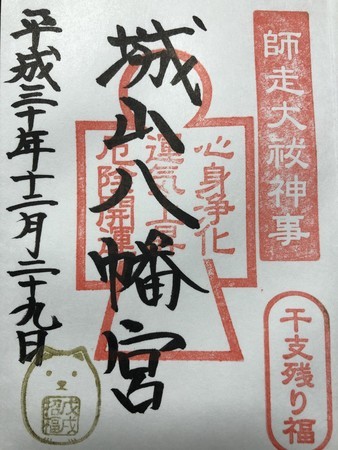 師走大祓神事
干支残り福
心身浄化
運気上昇
厄除開運
城山八幡宮
平成三十年十二月二十九日
戊戌
招福